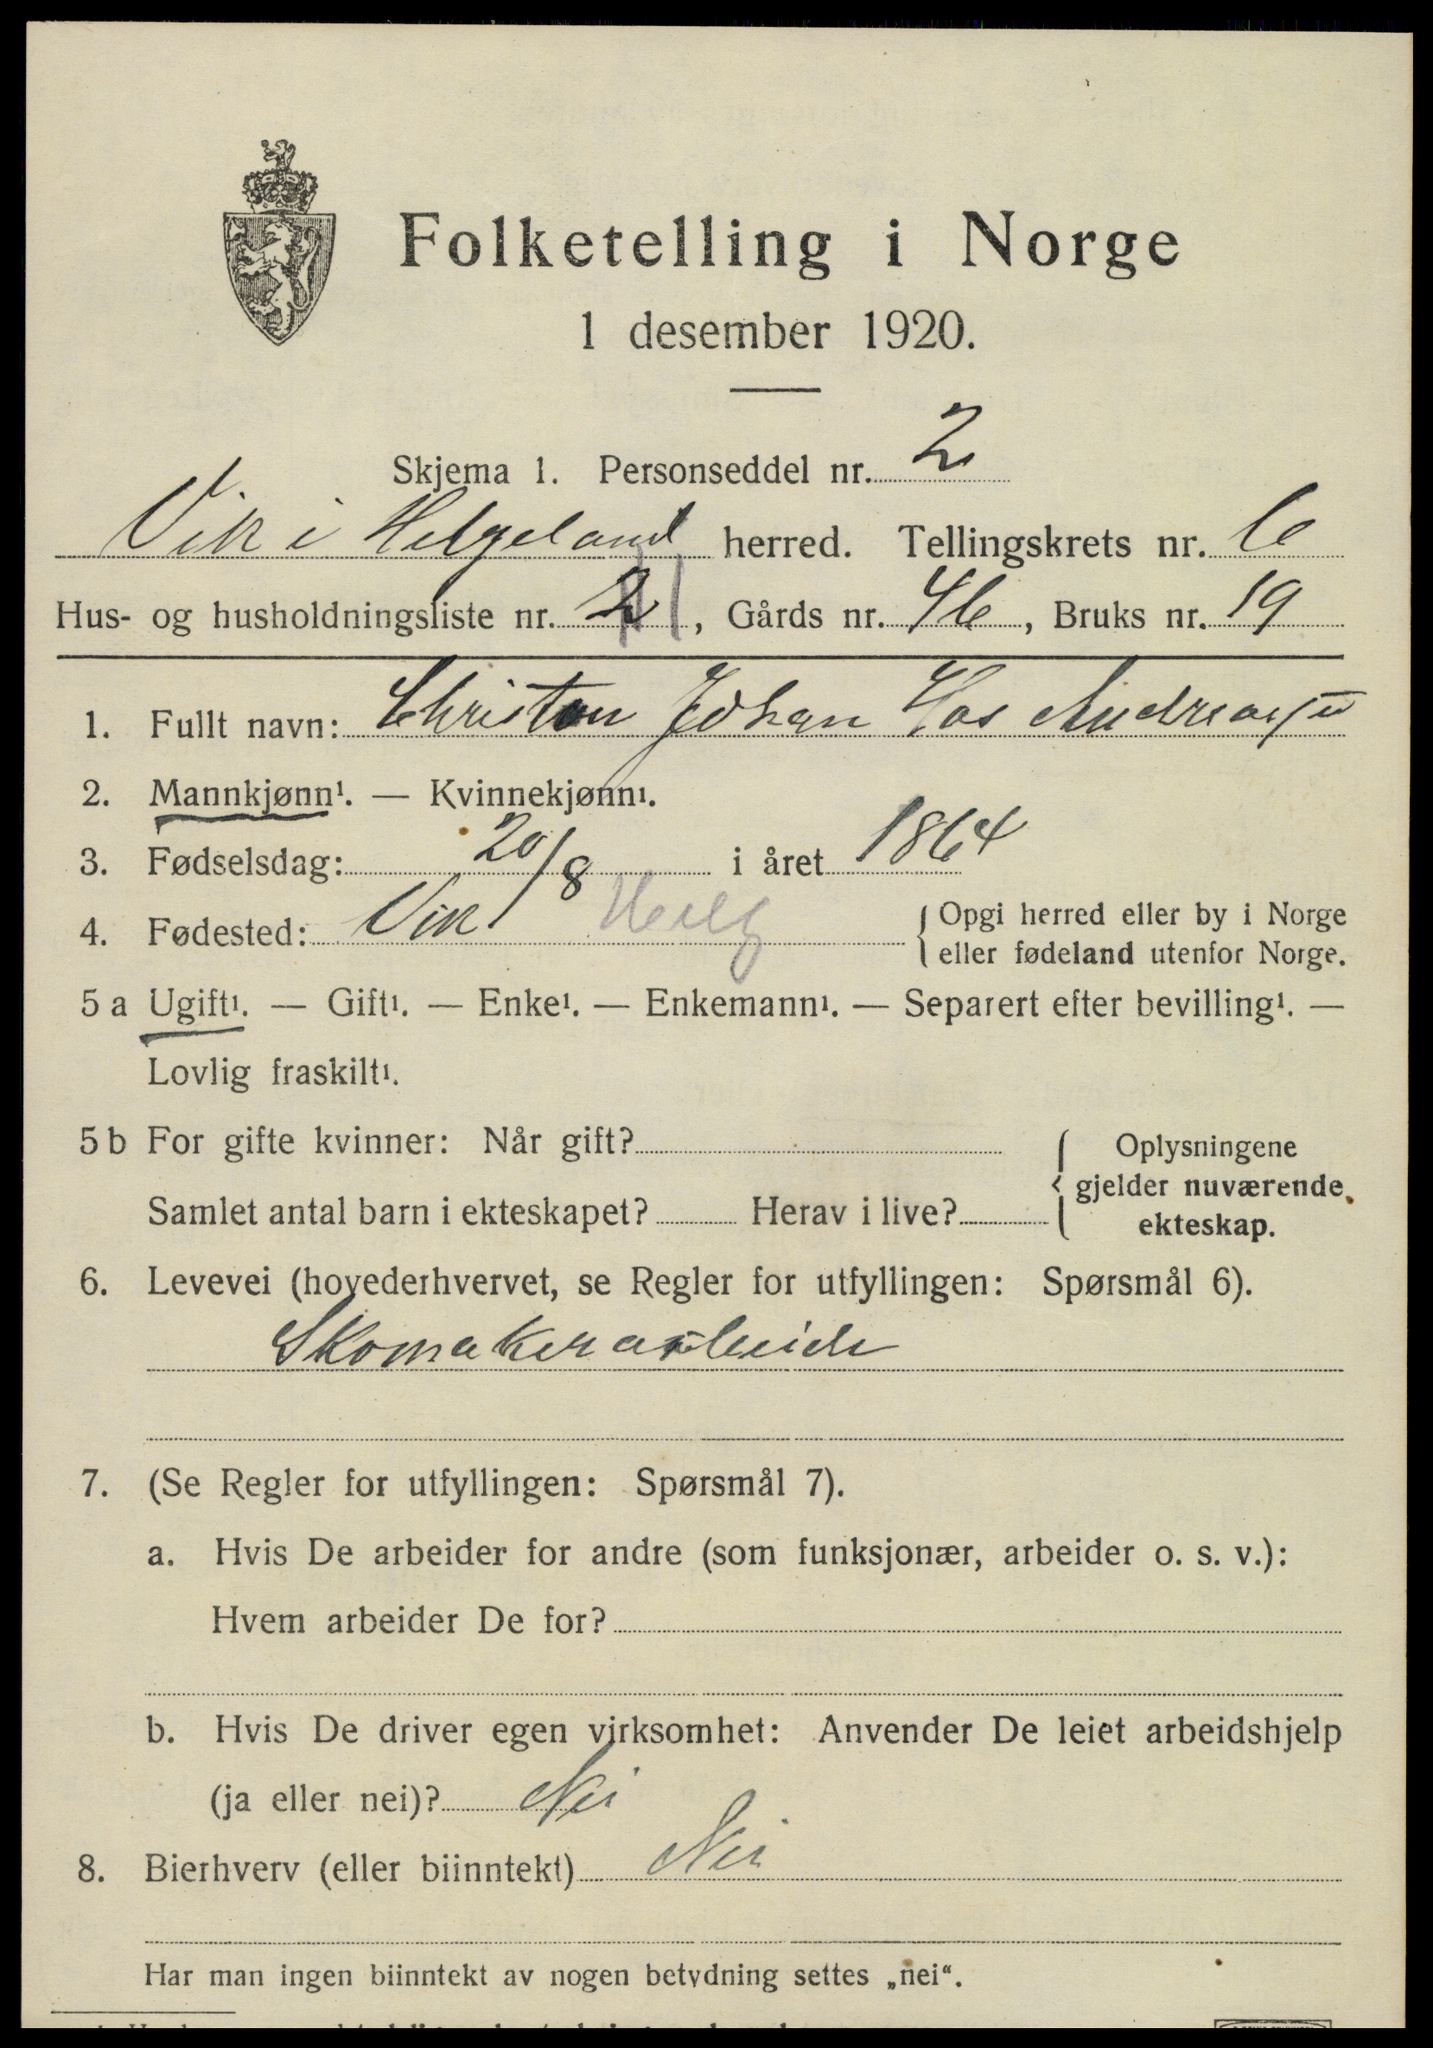 Folketelling i Norge
1 desember 1920.
Skjema 1. Personseddel nr. 2
Vik i Helgeland herred. Tellingskrets nr. 6
Hus- og husholdningsliste nr. 2, Gårds nr. 46, Bruks nr. 19
1. Fullt navn: Johan
2. Mannkjønn¹. — Kvinnekjønn¹.
3. Fødselsdag: 20/8 i året 1864
4. Fødested: Vik Helg {Opgi herred eller by i Norge
eller fødeland utenfor Norge.
5 a Ugift¹. — Gift¹. — Enke¹. — Enkemann¹. — Separert efter bevilling¹. —
Lovlig fraskilt¹.
5 b For gifte kvinner: Når gift? {Oplysningene
gjelder nuværende
ekteskap.
Samlet antal barn i ekteskapet? Herav i live?
6. Levevei (hovederhvervet, se Regler for utfyllingen: Spørsmål 6).
Skomakerarbeide
7. (Se Regler for utfyllingen: Spørsmål 7).
a. Hvis De arbeider for andre (som funksjonær, arbeider o. s. v.):
Hvem arbeider De for?
b. Hvis De driver egen virksomhet: Anvender De leiet arbeidshjelp
(ja eller nei)? Nei
8. Bierhverv (eller biinntekt) Nei
Har man ingen biinntekt av nogen betydning settes „nei“.